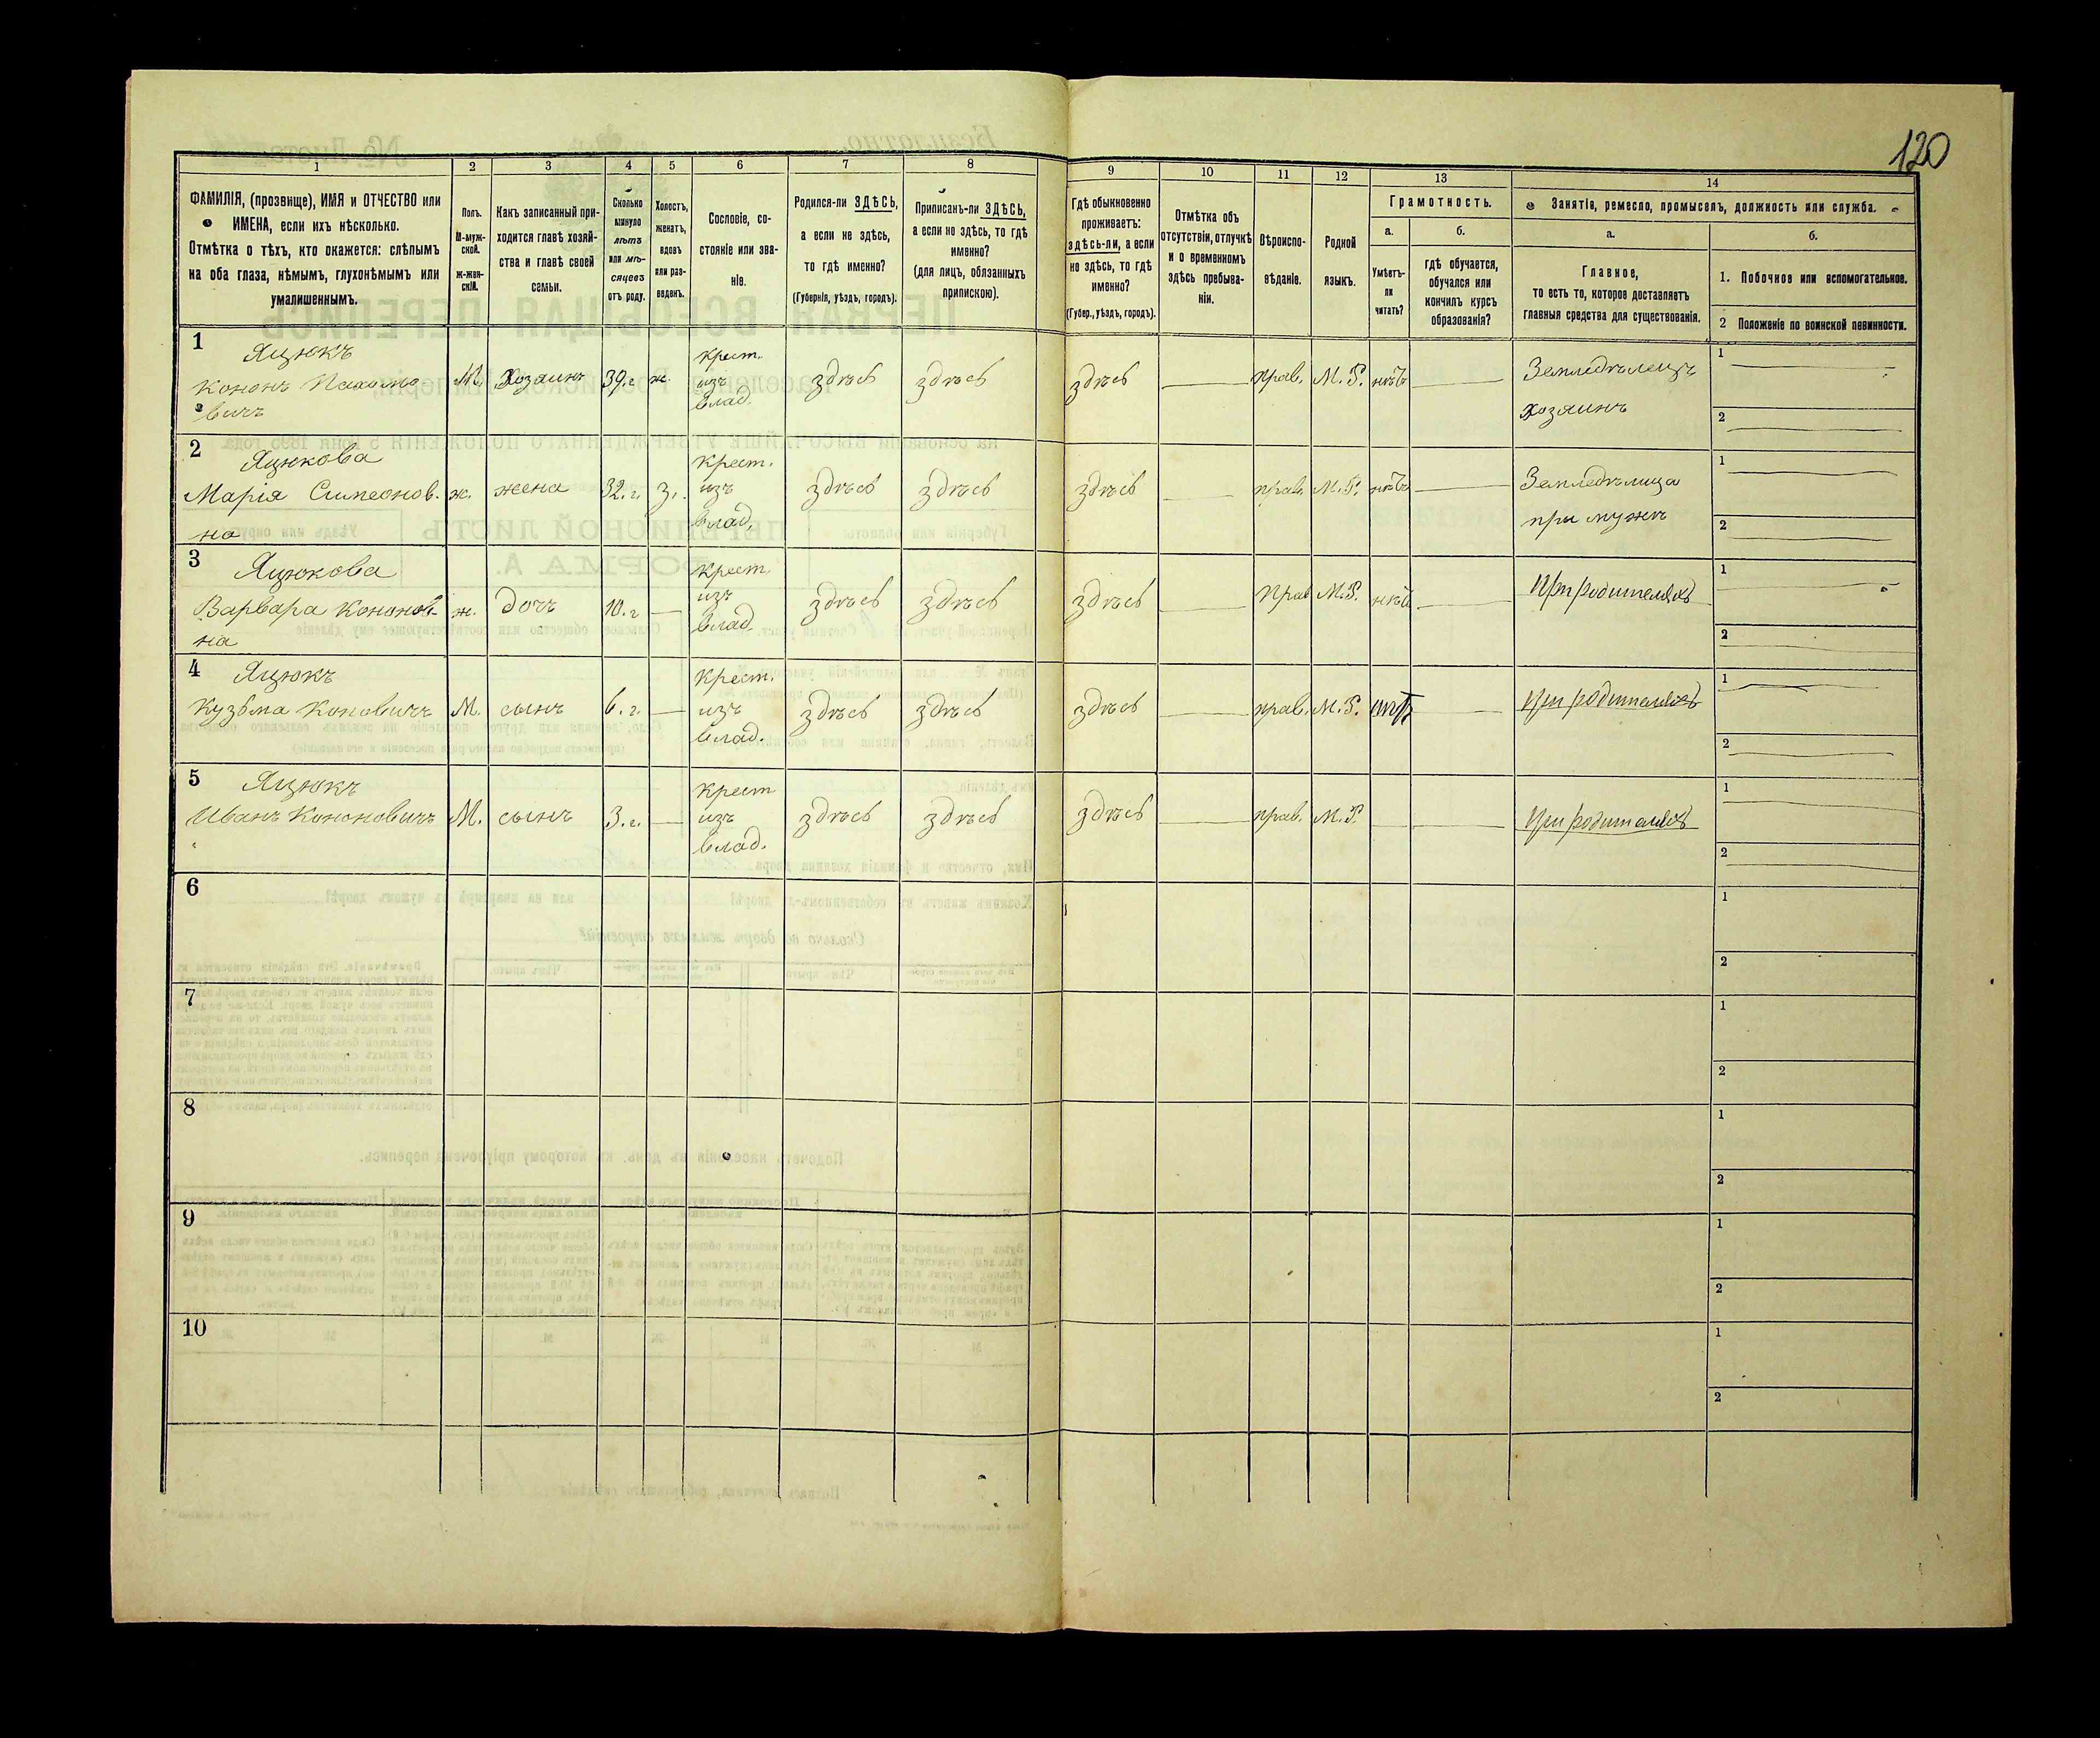 120
1 2 3 4 5 6 7 8 9 10 11 12 13 14
ФАМИЛІЯ, (прозвище), ИМЯ и ОТЧЕСТВО или
ИМЕНА, если ихъ нѣсколько.
Отмѣтка о тѣхъ, кто окажется: слѣпымъ
на оба глаза, нѣмымъ, глухонѣмымъ или
умалишеннымъ.
Полъ.
М-муж-
ской.
ж-жен-
скій.
Какъ записанный при-
ходится главѣ хозяй-
ства и главѣ своей
семьи.
Сколько
минуло
лѣтъ
или мѣ-
сяцевъ
отъ роду.
Холостъ,
женатъ,
вдовъ
или раз-
веденъ.
Сословіе, со-
стояніе или зва-
ніе.
Родился-ли ЗДѢСЬ,
а если не здѣсь,
то гдѣ именно?
(Губернія, уѣздъ, городъ).
Приписанъ-ли ЗДѢСЬ,
а если не здѣсь, то гдѣ
именно?
(для лицъ, обязанныхъ
припискою).
Гдѣ обыкновенно
проживаетъ:
здѣсь-ли, а если
не здѣсь, то гдѣ
именно?
(Губер., уѣздъ, городъ).
Отмѣтка объ
отсутствіи, отлучкѣ
и о временномъ
здѣсь пребыва-
ніи.
Вѣроиспо-
вѣданіе.
Родной
языкъ.
Грамотность.
а.
Умѣетъ-
ли
читать?
б.
гдѣ обучается,
обучался или
кончилъ курсъ
образованія?
Занятіе, ремесло, промыселъ, должность или служба.
а.
Главное,
то есть то, которое доставляетъ
главныя средства для существованія.
б.
1. Побочное или вспомогательное.
2 Положеніе по воинской повинности.
1 Яцюкъ
Кононъ Пахомо
вичъ
М. Хозяинъ 39.г ж.
крест.
изъ
влад.
здѣсь здѣсь здѣсь прав. М.Р. нѣтъ
Земледѣлецъ
хозяинъ
1
2
2 Яцюкова
Марія Симеонов.
на
ж. жена 32.г. з.
крест.
изъ
влад.
здѣсь здѣсь здѣсь прав. М.Р. нѣтъ
Земледѣлица
при мужѣ
1
2
3 Яцюкова
Варвара Кононов-
на
ж. дочь 10.г
крест.
изъ
влад.
здѣсь здѣсь здѣсь Прав М.Р. нѣтъ
При родителяхъ
1
2
4 Яцюкъ
Кузьма Коновичъ
М. сынъ 6.г.
крест.
изъ
влад.
здѣсь здѣсь здѣсь прав. М.Р. нѣтъ
При родителяхъ
1
2
5 Яцюкъ
Иванъ Кононовичъ
М. сынъ 3.г.
крест
изъ
влад.
здѣсь здѣсь здѣсь прав. М.Р.
При родителяхъ
1
2
6
1
2
7
1
2
8
1
2
9
1
2
10
1
2